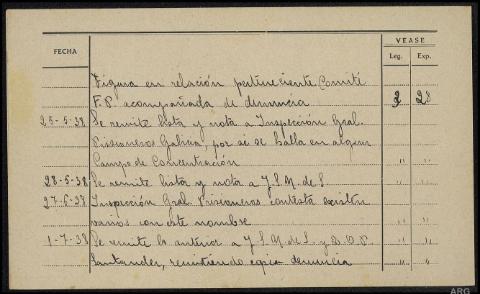 VEASE
FECHA Leg. Exp.
Figura en relación perteneciente Comité
F.P. acompañada de denuncia 2 28
25-5-38 Se remite lista y nota a Inspección Gral.
Prisioneros Galicia, por si se halla en algun
Campo de Concentración " "
28-5-38 Se remite lista y nota a J.S.M. de S. " "
27-6-38 Inspección Gral. Prisioneros contesta existen
varios con este nombre " "
1-7-38 Se remite lo anterior a J.S.M. de S. y D.O.P. " "
Santander, remitiendo copia denuncia " "
ARG